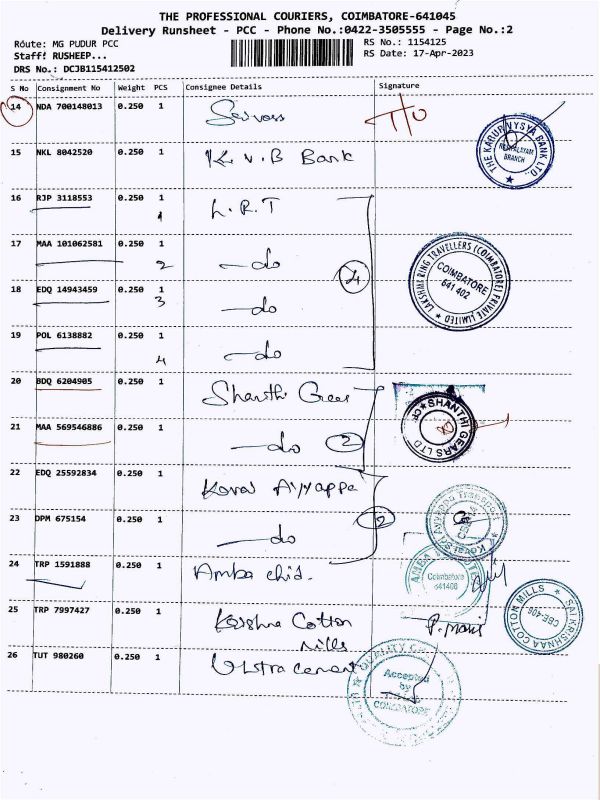 THE PROFESSIONAL COURIERS, COIMBATORE-641045
Delivery Runsheet - PCC - Phone No.:0422-3505555 - Page No.:2
Route: MG PUDUR PCC
Staff: RUSHEEP...
DRS No.: DCJB115412502
RS No.: 1154125
RS Date: 17-Apr-2023
S No Consignment No Weight PCS Consignee Details Signature
14 NDA 700148013 0.250 1
15 NKL 8042520 0.250 1 K. V. B Bank
THE KARUR VYSYA BANK LTD., BRANCH
16 RJP 3118553 0.250 1 L.R.T
1
17 MAA 101062581 0.250 1 —do
2
4
LAKSHMI RING TRAVELLERS (COIMBATORE) PRIVATE LIMITED
COIMBATORE
641 402
18 EDQ 14943459 0.250 1 —do
3
19 POL 6138882 0.250 1 —do
4
20 BDQ 6204905 0.250 1 Shanthi Gear
SHANTHI GEARS LTD
21 MAA 569546886 0.250 1 —do
2
22 EDQ 25592834 0.250 1 Kovai Aiyappa
23 DPM 675154 0.250 1 —do
2
24 TRP 1591888 0.250 1 Amba chid.
Coimbatore
641408
25 TRP 7997427 0.250 1 Krishna Cotton
Mills
SAI KRISHNAA COTTON MILLS
CBE-406
26 TUT 980260 0.250 1 Ultra cement
QUALITY
Accepted
by
COIMBATORE